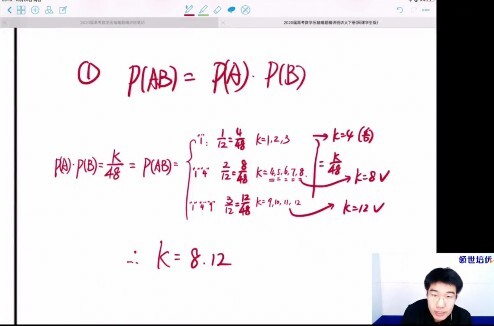 ① P(AB) = P(A)·P(B)
P(A)·P(B) = k/48 = P(AB) =
"1": 1/12 = 4/48 k=1,2,3 → k=4 (舍)
"1""4" 2/12 = 8/48 k=4,5,6,7,8 → k=8 ✓
"1""4""9" 3/12 = 12/48 k=9,10,11,12 → k=12 ✓
= k/48
∴ k = 8.12
领世培优